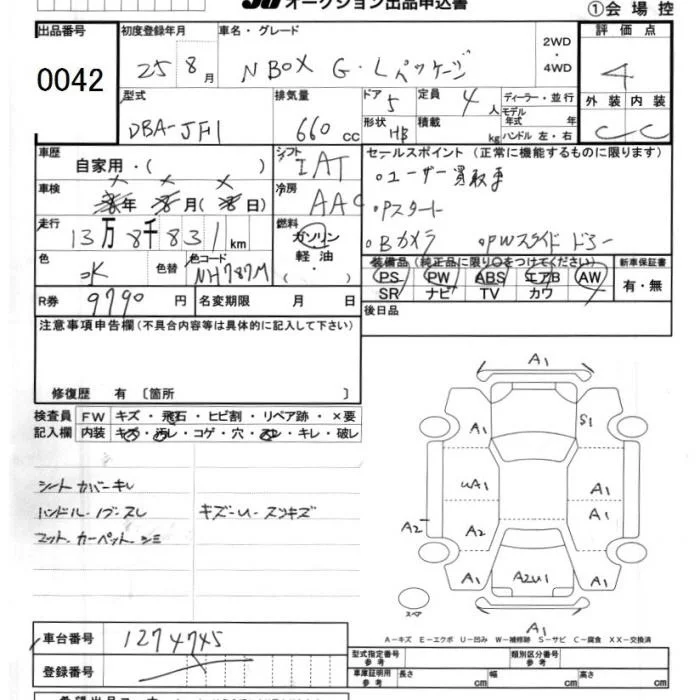 オークション出品申込書
①会場控
出品番号
0042
初度登録年月
25 8月
車名・グレード
N BOX G・Lパッケージ
2WD
・
4WD
評価点
4
外装 内装
C C
型式
DBA-JF1
排気量
660 cc
ドア 5
定員 4人
形状 HB
積載 kg
ディーラー・並行
モデル年式 年
ハンドル 左・右
車歴
自家用・( )
シフト
IAT
冷房
AAC
車検
年 月( 日)
走行
13万8千831km
燃料
ガソリン
軽油
( ・ )
色
色替
色コード
NH787M
R券 9790円
名変期限 月 日
セールスポイント(正常に機能するものに限ります)
○ユーザー買取車
○Pスタート
○Bカメラ ○PWスライドドアー
装備品(純正品に限り○をつけてください)
PS PW ABS エアB AW
SR ナビ TV カワ
新車保証書
有・無
後日品
注意事項申告欄(不具合内容等は具体的に記入して下さい)
修復歴 有 〔箇所 〕
検査員記入欄
FW キズ・飛石・ヒビ割・リペア跡・×要
内装 キズ・汚れ・コゲ・穴・スレ・キレ・破レ
シートカバーキレ
ハンドル・ノブ・スレ
キズ-U-スリキズ
マット.カーペットシミ
A1
A1
S1
uA1
A1
A1
A2
A2
A1
A2U1
A1
A1
スペア
A-キズ E-エクボ U-凹み W-補修跡 S-サビ C-腐食 XX-交換済
車台番号 1274745
登録番号
型式指定番号
参考
類別区分番号
参考
車庫証明用
参考
長さ cm
幅 cm
高さ cm